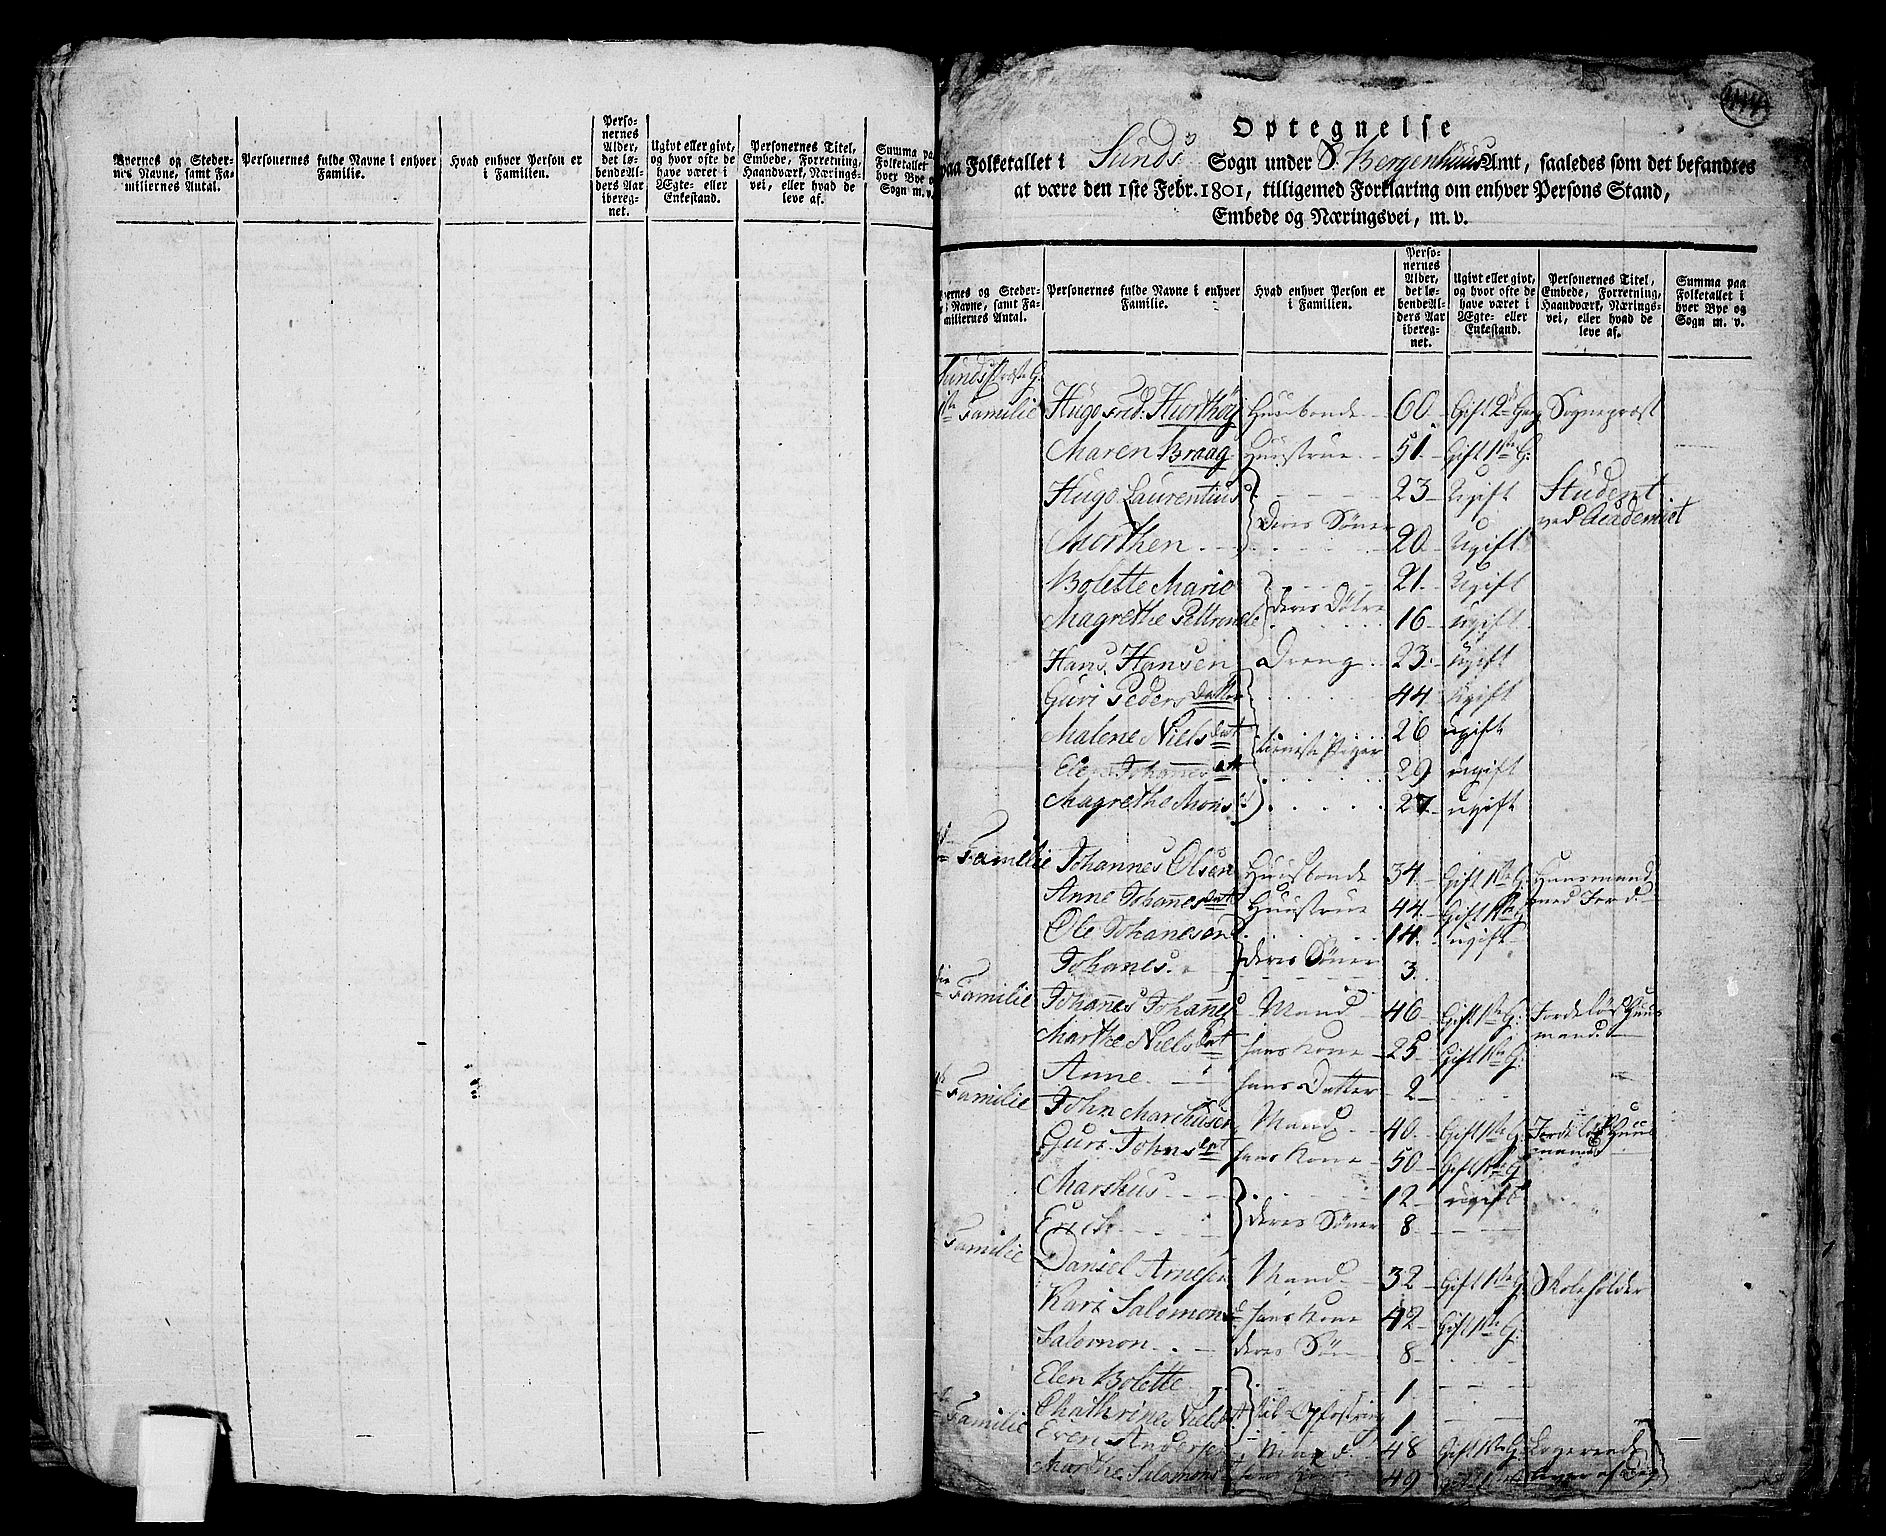 Byernes og Steder- nes Navne, samt Fa- miliernes Antal.
Personernes fulde Navne i enhver Familie.
Hvad enhver Person er i Familien.
Perso- nernes Alder, det lø- bende Al- ders Aar ibereg- net.
Ugivt eller givt, og hvor ofte de have været i Ægte- eller Enkestand.
Personernes Titel, Embede, Forretning, Haandværk, Nærings- vei, eller hvad de leve af.
Summa paa Folketallet hver Bye o Sogn m. v.
Optegnelse
paa Folketallet i Sunds Sogn under S. Bergenhuus Amt, saaledes som det befandtes
at være den 1ste Febr. 1801, tilligemed Forklaring om enhver Persons Stand,
Embede og Næringsvei, m. v.
yernes og Steder- s Navne, samt Fa- miliernes Antal.
Personernes fulde Navne i enhver Familie.
Hvad enhver Person er i Familien.
Perso- nernes Alder, det lø- bende Al- ders Aar ibereg- net.
Ugivt eller givt, og hvor ofte de have været i Ægte- eller Enkestand.
Personernes Titel, Embede, Forretning, Haandværk, Nærings- vei, eller hvad de leve af.
Summa paa Folketallet i hver Bye og Sogn m. v.
Sunds Præste G.
1ste Familie Hugo Fred: Hiorthøy Huusbonde 60 Gift 2den Gang Sognepræst
Maren Kraag Huustrue 51 Gift 1ste G:
Hugo Laurentius 23 Ugift Student
Deres Sønner ved Academiet
Morthen 20 Ugift
Bolette Marie 21 Ugift
Deres Døtre
Magrethe Pettronele 16 Ugift
Hans Hansen Dreng 23 Ugift
Guri Peders Datter 44 Ugift
Malene Niels Dat 26 ugift
tieneste Piger
Elen Johannes Dat 29 ugift
Magrethe Mons D 27 ugift
Familie Johannes Olsen Huusbonde 34 Gift 1ste G: Huusmand
Anne Johannes Dat Huustrue 44 Gift 1ste G med Jord
Ole Johanesen 14 ugift
deres Sønner
Johanes 3
Familie Johannes Johannes Mand 46 Gift 1ste G: Jordeløs Huus
mand
Marthe Niels Dat hans Kone 25 Gift 1ste G:
Anne hans Datter 2
Familie John Marchusen Mand 40 Gift 1ste G: Jordeløs Huus
mand
Guri Johns Dat hans Kone 50 Gift 1ste G
Marchus 12 ugift
deres Sønner
Erich 8
Familie Daniel Arnesen Mand 32 Gift 1ste G Skoleholder
Kari Salomons D hans Kone 42 Gift 1ste G:
Salomon deres Søn 8
Elen Bolette 1
Chathrine Niels Dat til Opfostring 1
Familie Even Andersen Mand 48 Gift 1ste G: Logerende
Marthe Salomons D hans Kone 49